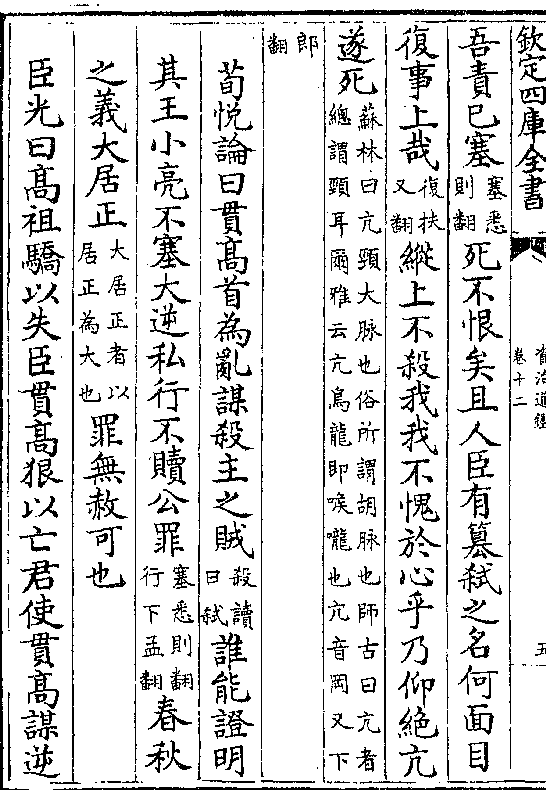 欽定四庫全書
資治通鑑
卷十二
五
吾責已塞塞悉則翻死不恨矣且人臣有簒弑之名何面目
復事上哉復扶又翻縱上不殺我我不愧於心乎乃仰絶亢
遂死蘇林曰亢頸大脉也俗所謂胡脉也師古曰亢者總謂頸耳爾雅云亢鳥嚨即喉嚨也亢音岡又下
郎翻
荀悦論曰貫髙首為亂謀殺主之賊殺讀曰弑誰能證明
其王小亮不塞大逆私行不贖公罪塞悉則翻行下孟翻春秋
之義大居正大居正者以居正為大也罪無赦可也
臣光曰髙祖驕以失臣貫髙狠以亡君使貫髙謀逆